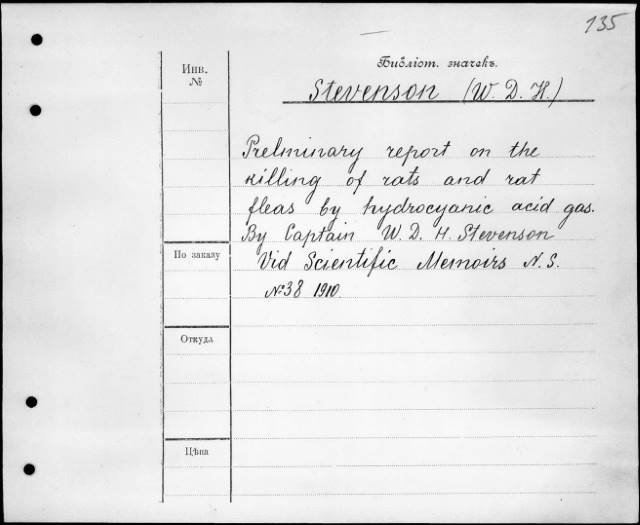 135
Библіот. значекъ.
Инв.
№
Stevenson (W. D. H.)
Prelminary report on the
killing of rats and rat
fleas by hydrocyanic acid gas.
By Captain W. D. H. Stevenson
По заказу
Vid Scientific Memoirs N. S.
№38 1910.
Откуда
Цѣна